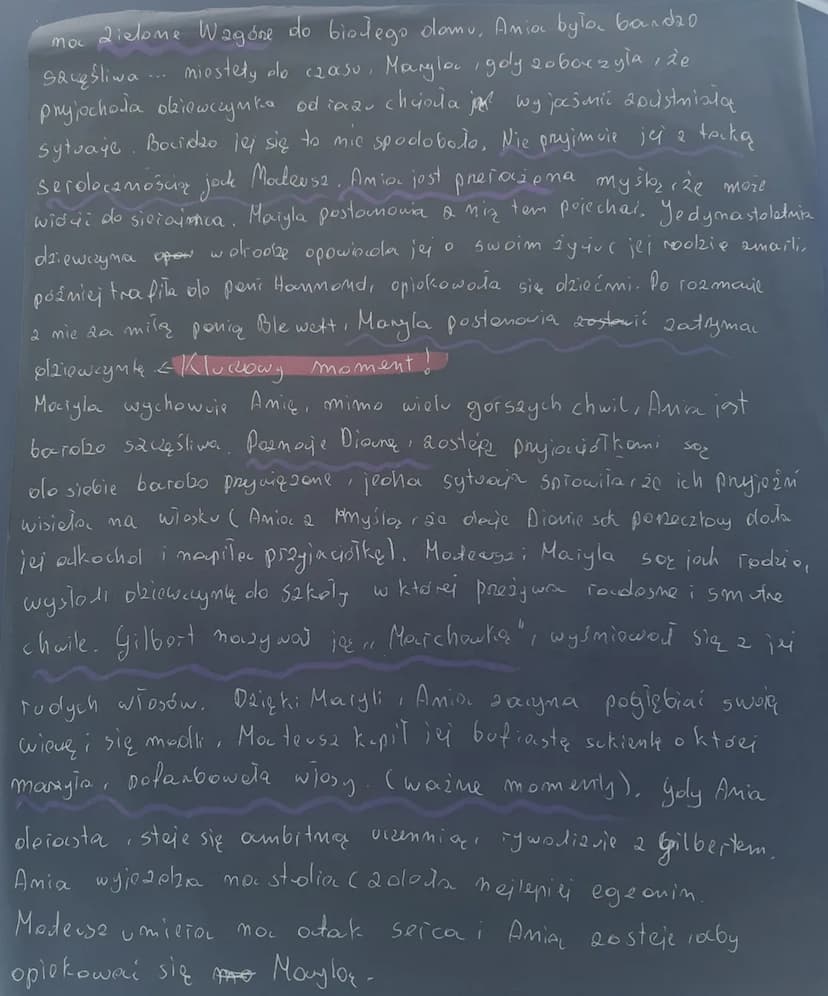 na Zielone Wzgórze do białego domu. Ania była bardzo
szczęśliwa... niestety do czasu. Maryla, gdy zobaczyła, że
przyjechała dziewczynka od razu chciała wyjaśnić zaistniałą
sytuacje. Bardzo jej się to nie spodobało. Nie przyjmuje jej z taką
serdecznością jak Mateusz. Ania jest przerażona myślą, że może
wrócić do sierocińca. Maryla postanowia z nią tam pojechać. Jedynastoletnia
dziewczyna w drodze opowiadała jej o swoim życiu: jej rodzice zmarli,
później trafiła do pani Hammond, opiekowała się dziećmi. Po rozmowie
z nie za miłą panią Blewett, Maryla postanowia zatrzymac
dziewczynkę ← Kluczowy moment!
Maryla wychowuje Anię, mimo wielu gorszych chwil, Ania jest
bardzo szczęśliwa. Poznaje Dianę, zostają przyjaciółkami są
do siebie bardzo przywiązane, jedna sytuacja sprawiła że ich przyjaźń
wisiała na włosku (Ania z myślą, że daje Dianie sok porzeczkowy dała
jej alkohol i napiła przyjaciółkę). Mateusz i Maryla są jach rodzice,
wysłali dziewczynkę do szkoły w której przeżywa radosne i smutne
chwile. Gilbert nazywał ją "Marchewką", wyśmiewał się z jej
rudych włosów. Dzięki Maryli, Ania zaczyna pogłębiać swoją
wiarę i się modli, Mateusz kupił jej bufiastą sukienkę o której
marzyła, pofarbowała włosy. (ważne momenty). Gdy Ania
dorasta, staje się ambitną uczennicą, rywalizuje z Gilbertem.
Ania wyjeżdża na studia (zdała najlepiej egzamin.
Mateusz umiera na atak serca i Ania zostaje, aby
opiekować się Marylą.